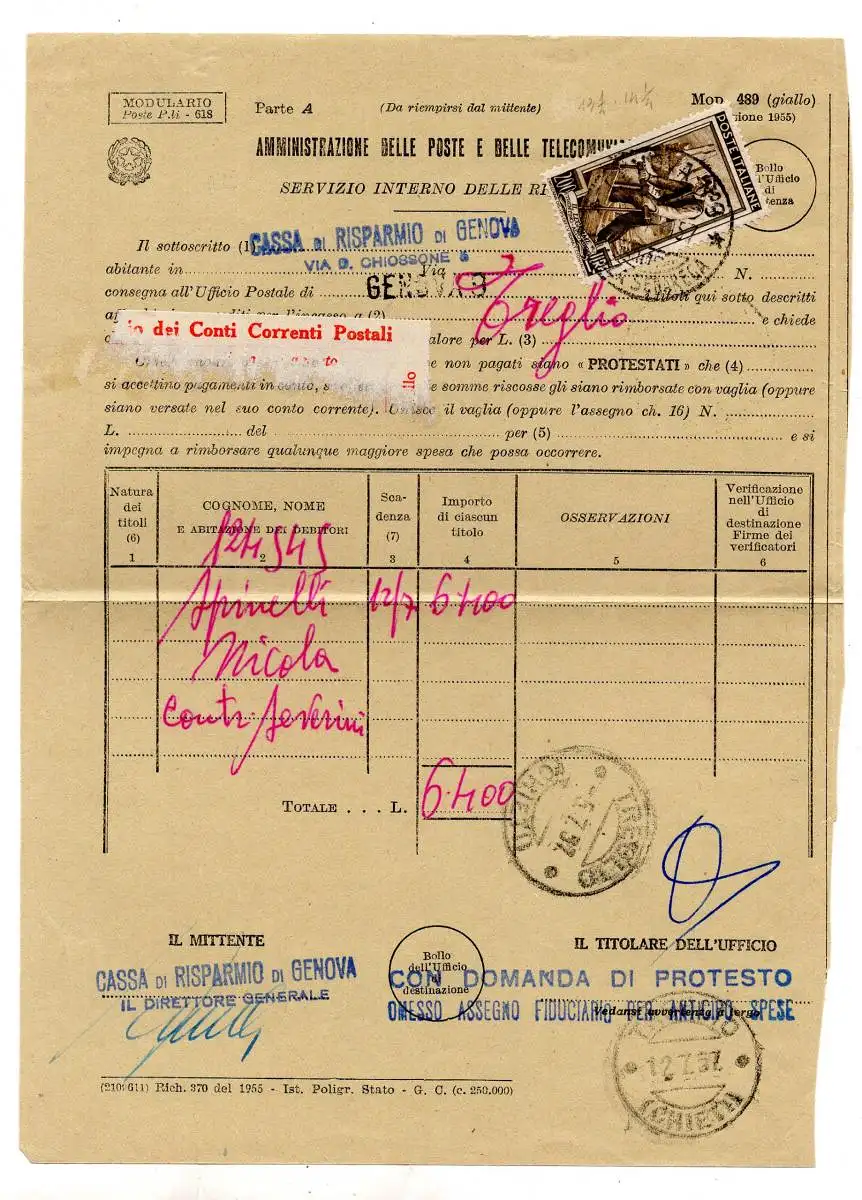 MODULARIO
Poste P.li - 618
Parte A
(Da riempirsi dal mittente)
Mod. 489 (giallo)
zione 1955)
AMMINISTRAZIONE DELLE POSTE E DELLE TELECOMU
SERVIZIO INTERNO DELLE RI
POSTE ITALIANE
200
Bollo
l'Ufficio
di
tenza
Il sottoscritto (1)
CASSA DI RISPARMIO DI GENOVA
VIA D. CHIOSSONE
abitante in Via N.
consegna all'Ufficio Postale di GENOVA titoli qui sotto descritti
Treglio
(2) e chiede
io dei Conti Correnti Postali
alore per L. (3)
e non pagati siano « PROTESTATI » che (4)
si accettino pagamenti in conto, e somme riscosse gli siano rimborsate con vaglia (oppure
siano versate nel suo conto corrente). il vaglia (oppure l'assegno ch. 16) N.
L. del per (5) e si
impegna a rimborsare qualunque maggiore spesa che possa occorrere.
Natura dei titoli (6)
COGNOME, NOME E ABITAZIONE DEI DEBITORI
Scadenza (7)
Importo di ciascun titolo
OSSERVAZIONI
Verificazione nell'Ufficio di destinazione Firme dei verificatori
1 2 3 4 5 6
124545
Spinelli 12/7 6400
Nicola
contr. Severini
TOTALE . . . L. 6400
TREGLIO
IL MITTENTE
Bollo
dell'Ufficio
di
destinazione
IL TITOLARE DELL'UFFICIO
CASSA DI RISPARMIO DI GENOVA
IL DIRETTORE GENERALE
CON DOMANDA DI PROTESTO
OMESSO ASSEGNO FIDUCIARIO PER ANTICIPO SPESE
Vedansi avvertenze a tergo
TREGLIO
12.7.57
(CHIETI)
Rich. 370 del 1955 - Ist. Poligr. Stato - G. C. (c. 250.000)